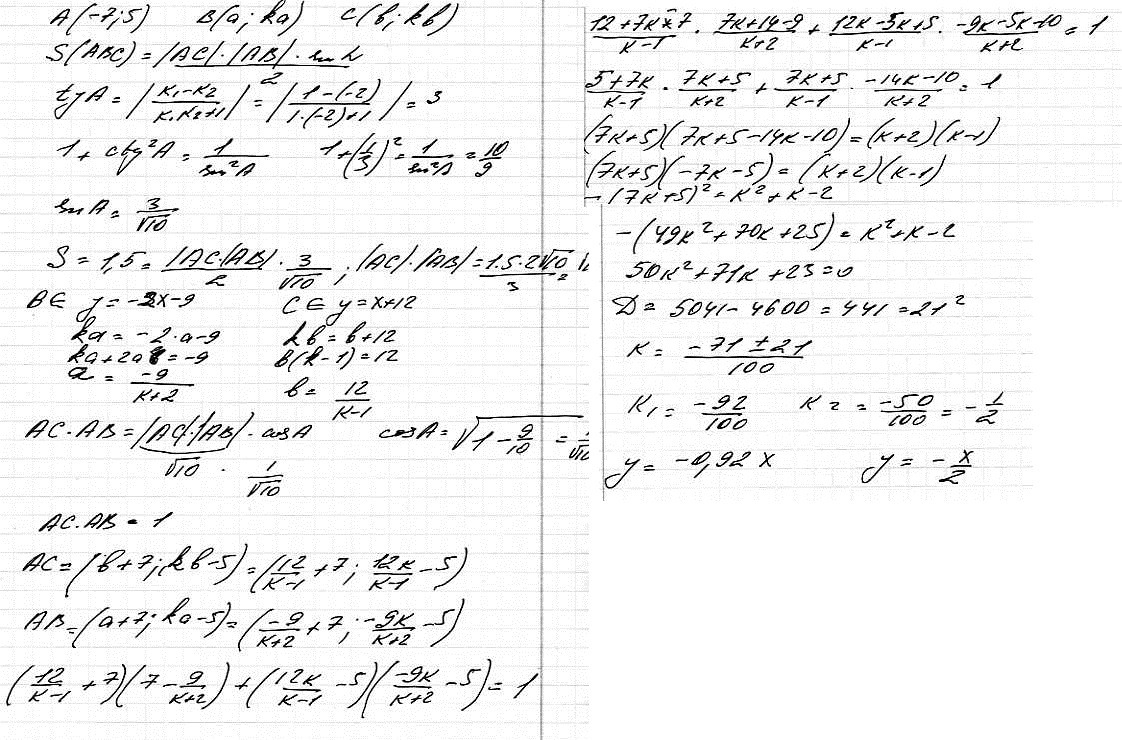 A(-7;5) B(a; ka) C(b; kb)
S(ABC) = |AC|·|AB|·sin α / 2
tg A = |(k₁-k₂)/(k₁k₂+1)| = |(1-(-2))/(1·(-2)+1)| = 3
1 + ctg²A = 1/sin²A 1+(1/3)² = 1/sin²A = 10/9
sin A = 3/√10
S = 1,5 = |AC|·|AB|/2 · 3/√10 ; |AC|·|AB| = 1.5·2√10/3 =
B ∈ y = -2x-9 C ∈ y = x+12
ka = -2·a-9 kb = b+12
ka+2a = -9 b(k-1) = 12
a = -9/(k+2) b = 12/(k-1)
AC·AB = |AC|·|AB|·cos A cos A = √(1-9/10) = 1/√10
√10 · 1/√10
AC·AB = 1
AC = (b+7; kb-5) = (12/(k-1)+7; 12k/(k-1)-5)
AB = (a+7; ka-5) = (-9/(k+2)+7; -9k/(k+2)-5)
(12/(k-1)+7)(7-9/(k+2)) + (12k/(k-1)-5)(-9k/(k+2)-5) = 1
(12+7k-7)/(k-1) · (7k+14-9)/(k+2) + (12k-5k+5)/(k-1) · (-9k-5k-10)/(k+2) = 1
(5+7k)/(k-1) · (7k+5)/(k+2) + (7k+5)/(k-1) · (-14k-10)/(k+2) = 1
(7k+5)(7k+5-14k-10) = (k+2)(k-1)
(7k+5)(-7k-5) = (k+2)(k-1)
-(7k+5)² = k²+k-2
-(49k²+70k+25) = k²+k-2
50k²+71k+23=0
D = 5041-4600 = 441 = 21²
k = (-71±21)/100
k₁ = -92/100 k₂ = -50/100 = -1/2
y = -0,92x y = -x/2